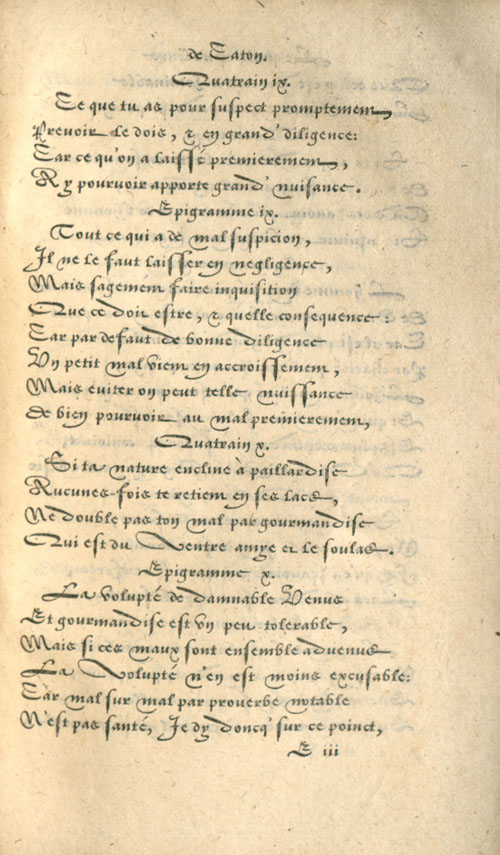 de Caton.
Quatrain ix.
Ce que tu as pour suspect promptement,
Prevoir le dois, & en grand' diligence:
Car ce qu'on a laissé premierement,
A y pourvoir apporte grand' nuisance.
Epigramme ix.
Tout ce qui a de mal suspicion,
Il ne le faut laisser en negligence,
Mais sagement faire inquisition
Que ce doit estre, & quelle consequence:
Car par defaut de bonne diligence
Un petit mal vient en accroissement,
Mais eviter on peut telle nuissance
De bien pourvoir au mal premierement,
Quatrain x.
Si ta nature encline à paillardise
Aucunes-fois te retient en ses lacs,
Ne double pas ton mal par gourmandise
Qui est du Ventre amye et le soulas.
Epigramme x.
La volupté de damnable Venus
Et gourmandise est un peu tolerable,
Mais si ces maux sont ensemble advenus
La Volupté n'en est moins excusable:
Car mal sur mal par proverbe notable
N'est pas santé, Je dy doncq' sur ce poinct,
E iii